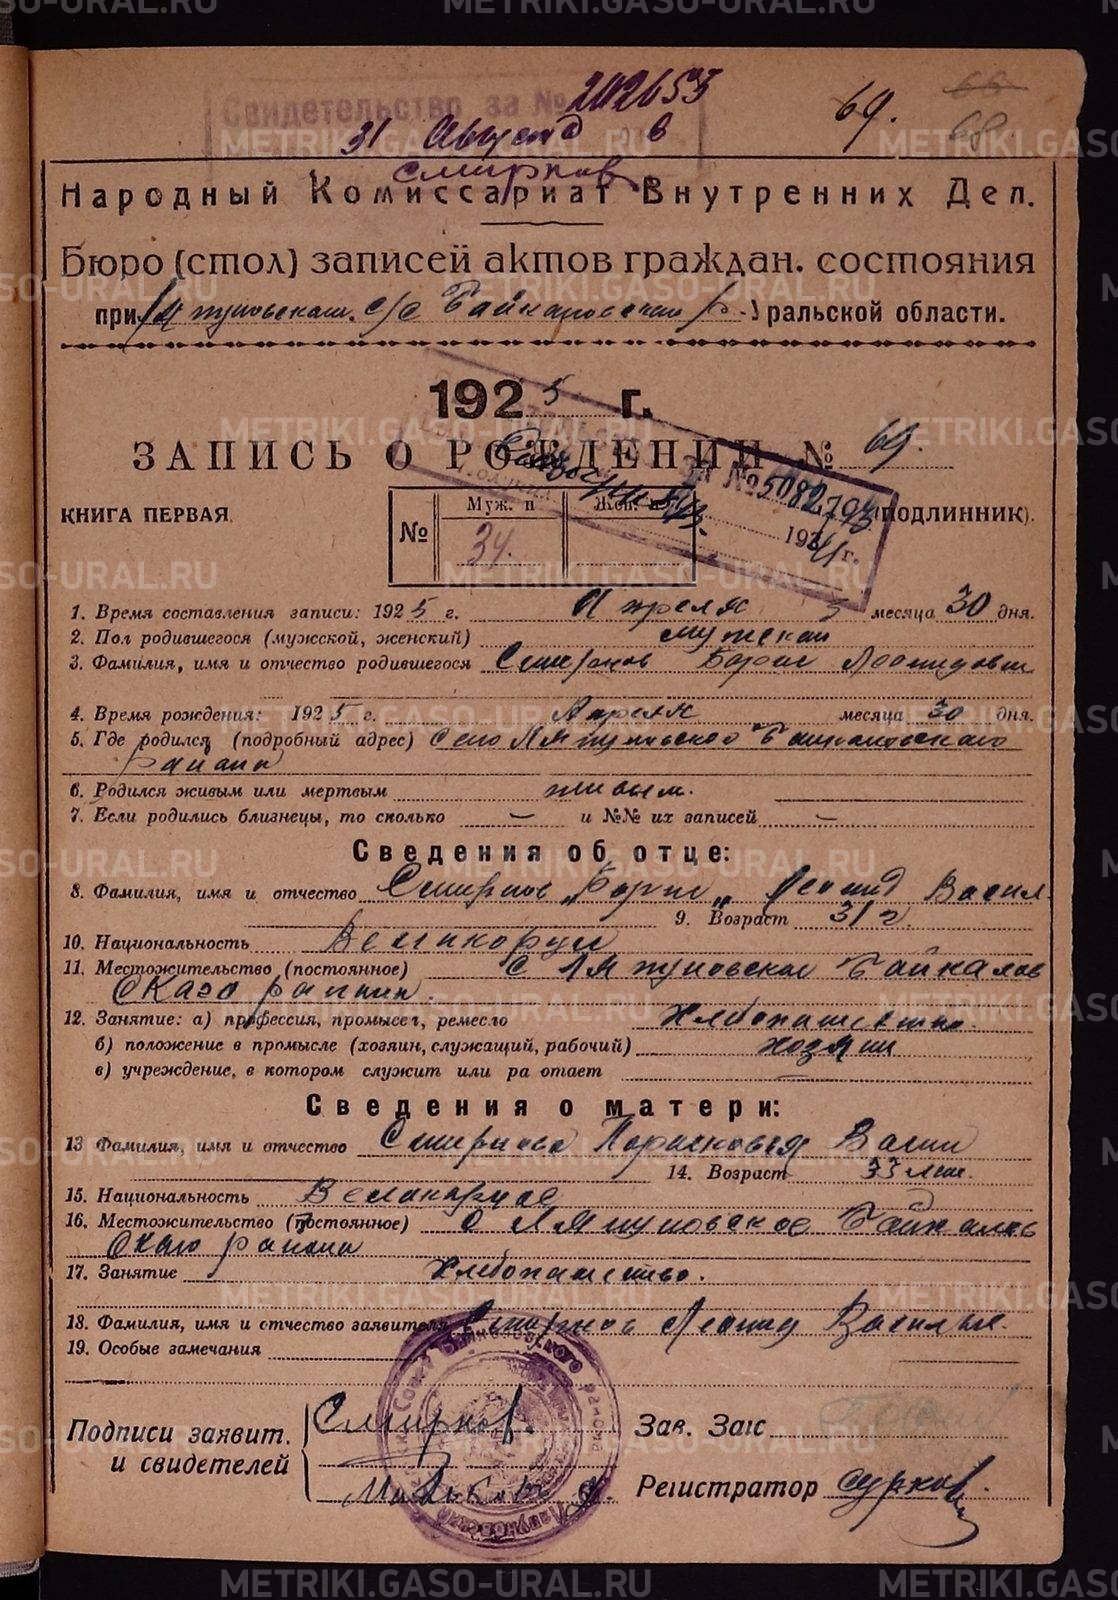 METRIKI.GASO-URAL.RU
Свидетельство за № 202653
31 Августа в
69. 66
68.
Смирнов
Народный Комиссариат Внутренних Дел.
Бюро (стол) записей актов граждан. состояния
при с/с Р. Уральской области.
1925 г.
ЗАПИСЬ О РОЖДЕНИИ № 69.
за № 5082793
КНИГА ПЕРВАЯ. (ПОДЛИННИК).
№ Муж. п Жен. п.
34.
1941 г.
1. Время составления записи: 1925 г. Апреля месяца 30 дня.
2. Пол родившегося (мужской, женский) мужской
3. Фамилия, имя и отчество родившегося Смирнов Борис Леонидович
4. Время рождения: 1925 г. Апреля месяца 30 дня.
5. Где родился (подробный адрес) Село
района
6. Родился живым или мертвым живым.
7. Если родились близнецы, то сколько — и №№ их записей —
Сведения об отце:
8. Фамилия, имя и отчество Смирнов „Борис„ Леонид Васил.
9. Возраст 31 г.
10. Национальность Великорус
11. Местожительство (постоянное) с Байкалов
скаго района.
12. Занятие: а) профессия, промысел, ремесло Хлебопашество.
б) положение в промысле (хозяин, служащий, рабочий) хозяин
в) учреждение, в котором служит или ра отает
Сведения о матери:
13 Фамилия, имя и отчество Смирнова Парасковья Васил
14. Возраст 33 лет.
15. Национальность
16. Местожительство (постоянное) с Байкалов
скаго района
17. Занятие Хлебопашество.
18. Фамилия, имя и отчество заявителя Смирнов Леонид Василье
19. Особые замечания
Подписи заявит. и свидетелей
Смирнов.
Зав. Загс
Регистратор Сурков